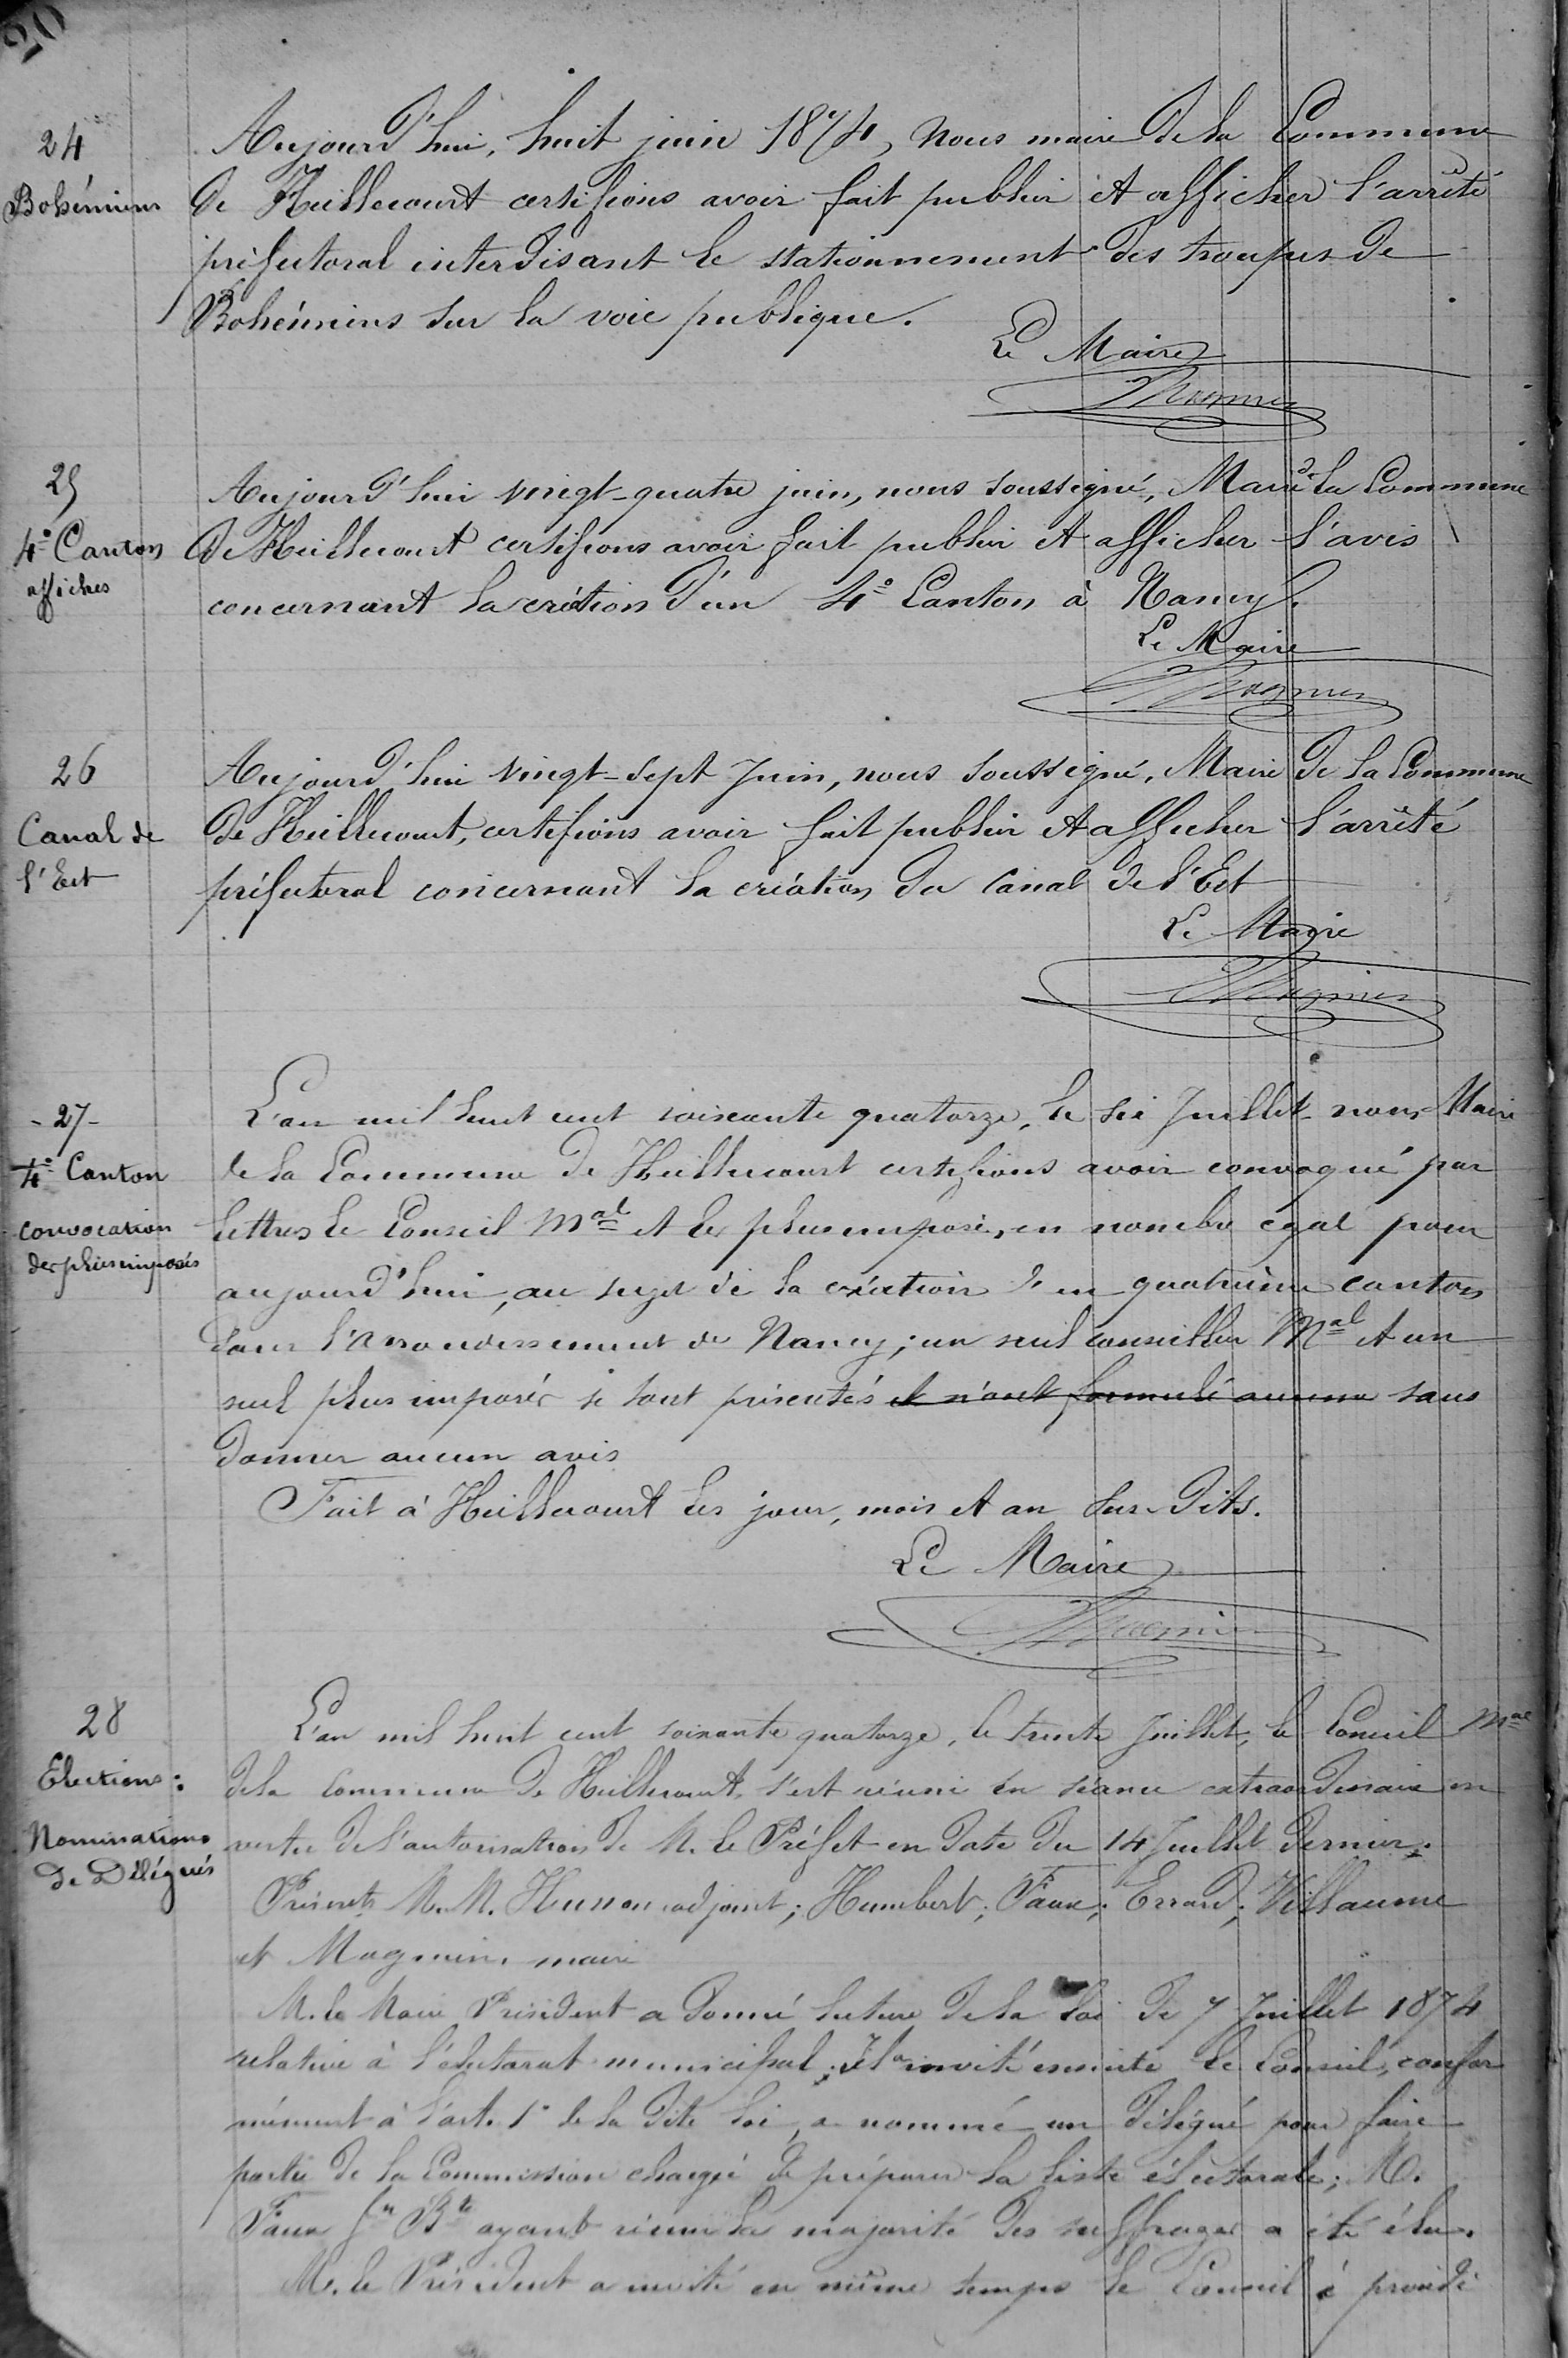 50
24
Bohémiens
Aujourd'hui, huit juin 1874, nous maire de la Commune
de Heillecourt certifions avoir fait publier et afficher l'arrêté
préfectoral interdisant le stationnement des troupes de
Bohémiens sur la voie publique.
Le Maire
Magnien
25
4e Canton
affiches
Aujourd'hui vingt-quatre juin, nous soussigné, Maire de la Commune
de Heillecourt certifions avoir fait publier et afficher l'avis
concernant la création d'un 4e Canton à Nancy.
Le Maire
Magnien
26
Canal de
l'Est
Aujourd'hui vingt-sept Juin, nous soussigné, Maire de la Commune
de Heillecourt, certifions avoir fait publier et afficher l'arrêté
préfectoral concernant la création du Canal de l'Est
Le Maire
Magnien
- 27 -
4e Canton
convocation
des plus imposés
L'an mil huit cent soixante quatorze, le six Juillet nous Maire
de la Commune de Heillecourt certifions avoir convoqué par
lettres le Conseil Mal et les plus imposés, en nombre égal pour
aujourd'hui, au sujet de la création d'un quatrième canton
dans l'arrondissement de Nancy; un seul conseiller Mal et un
seul plus imposés se sont présentés et n'ont formulé aucune sans
donner aucun avis
Fait à Heillecourt les jour, mois et an sus-dits.
Le Maire
Magnien
28
Elections:
Nominations
de Délégués
L'an mil huit cent soixante quatorze, le trente Juillet, le Conseil Mal
de la Commune de Heillecourt, s'est réuni en séance extraordinaire en
vertu de l'autorisation de M. le Préfet en date du 14 Juillet dernier.
Présents M.M. Husson adjoint; Humbert; Faux; Errard; Villaume
et Magnien, maire
M. le Maire Président a donné lecture de la loi de 7 Juillet 1874
relative à l'électorat municipal; Il a invité ensuite le Conseil, confor
mément à l'art. 1er de la dite loi, a nommé un délégué pour faire
partie de la Commission chargée de préparer la liste électorale; M.
Faux Jn Bte ayant réuni la majorité des suffrages a été élu.
M. le Président a invité en même temps le Conseil à procédé